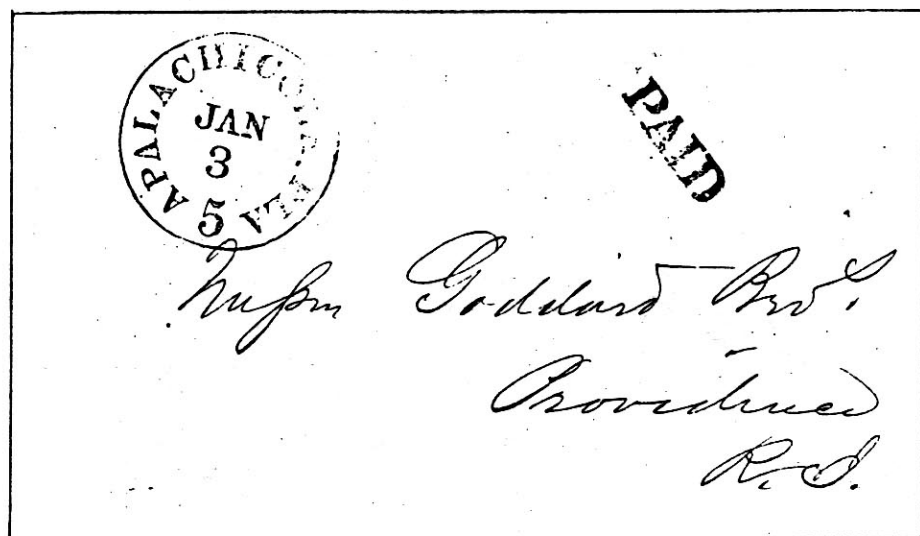 APALACHICOLA. FLA
JAN
3
5
PAID
Messrs Goddard Bros.
Providence
R.I.